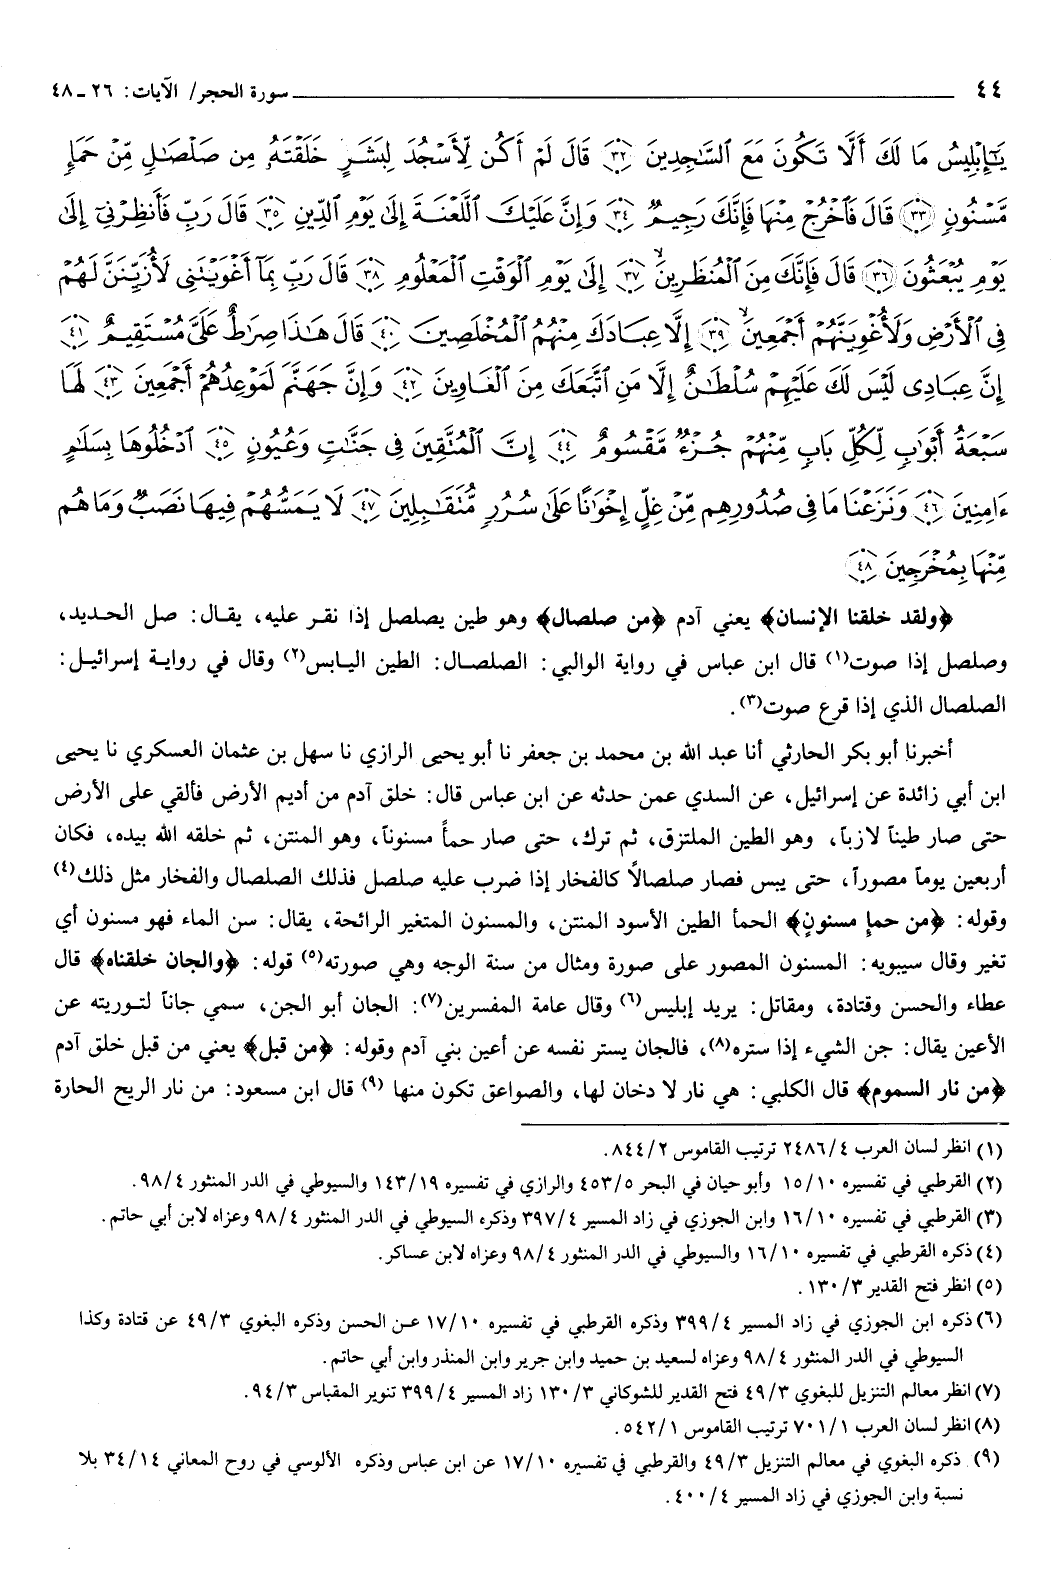 ٤٤ سورة الحجر/ الآيات: ٢٦ ـ ٤٨
يَٰٓإِبْلِيسُ مَا لَكَ أَلَّا تَكُونَ مَعَ ٱلسَّٰجِدِينَ ٣٢ قَالَ لَمْ أَكُن لِّأَسْجُدَ لِبَشَرٍ خَلَقْتَهُۥ مِن صَلْصَٰلٍ مِّنْ حَمَإٍ
مَّسْنُونٍ ٣٣ قَالَ فَٱخْرُجْ مِنْهَا فَإِنَّكَ رَجِيمٌ ٣٤ وَإِنَّ عَلَيْكَ ٱللَّعْنَةَ إِلَىٰ يَوْمِ ٱلدِّينِ ٣٥ قَالَ رَبِّ فَأَنظِرْنِىٓ إِلَىٰ
يَوْمِ يُبْعَثُونَ ٣٦ قَالَ فَإِنَّكَ مِنَ ٱلْمُنظَرِينَ ٣٧ إِلَىٰ يَوْمِ ٱلْوَقْتِ ٱلْمَعْلُومِ ٣٨ قَالَ رَبِّ بِمَآ أَغْوَيْتَنِى لَأُزَيِّنَنَّ لَهُمْ
فِى ٱلْأَرْضِ وَلَأُغْوِيَنَّهُمْ أَجْمَعِينَ ٣٩ إِلَّا عِبَادَكَ مِنْهُمُ ٱلْمُخْلَصِينَ ٤٠ قَالَ هَٰذَا صِرَٰطٌ عَلَىَّ مُسْتَقِيمٌ ٤١
إِنَّ عِبَادِى لَيْسَ لَكَ عَلَيْهِمْ سُلْطَٰنٌ إِلَّا مَنِ ٱتَّبَعَكَ مِنَ ٱلْغَاوِينَ ٤٢ وَإِنَّ جَهَنَّمَ لَمَوْعِدُهُمْ أَجْمَعِينَ ٤٣ لَهَا
سَبْعَةُ أَبْوَٰبٍ لِّكُلِّ بَابٍ مِّنْهُمْ جُزْءٌ مَّقْسُومٌ ٤٤ إِنَّ ٱلْمُتَّقِينَ فِى جَنَّٰتٍ وَعُيُونٍ ٤٥ ٱدْخُلُوهَا بِسَلَٰمٍ
ءَامِنِينَ ٤٦ وَنَزَعْنَا مَا فِى صُدُورِهِم مِّنْ غِلٍّ إِخْوَٰنًا عَلَىٰ سُرُرٍ مُّتَقَٰبِلِينَ ٤٧ لَا يَمَسُّهُمْ فِيهَا نَصَبٌ وَمَا هُم
مِّنْهَا بِمُخْرَجِينَ ٤٨
﴿ولقد خلقنا الإنسان﴾ يعني آدم ﴿من صلصال﴾ وهو طين يصلصل إذا نقر عليه، يقال: صل الحديد،
وصلصل إذا صوت(١) قال ابن عباس في رواية الوالبي: الصلصال: الطين اليابس(٢) وقال في رواية إسرائيل:
الصلصال الذي إذا قرع صوت(٣).
أخبرنا أبو بكر الحارثي أنا عبد الله بن محمد بن جعفر نا أبو يحيى الرازي نا سهل بن عثمان العسكري نا يحيى
ابن أبي زائدة عن إسرائيل، عن السدي عمن حدثه عن ابن عباس قال: خلق آدم من أديم الأرض فألقي على الأرض
حتى صار طيناً لازباً، وهو الطين الملتزق، ثم ترك، حتى صار حمأً مسنوناً، وهو المنتن، ثم خلقه الله بيده، فكان
أربعين يوماً مصوراً، حتى يبس فصار صلصالاً كالفخار إذا ضرب عليه صلصل فذلك الصلصال والفخار مثل ذلك(٤)
وقوله: ﴿من حمإ مسنون﴾ الحمأ الطين الأسود المنتن، والمسنون المتغير الرائحة، يقال: سن الماء فهو مسنون أي
تغير وقال سيبويه: المسنون المصور على صورة ومثال من سنة الوجه وهي صورته(٥) قوله: ﴿والجان خلقناه﴾ قال
عطاء والحسن وقتادة، ومقاتل: يريد إبليس(٦) وقال عامة المفسرين(٧): الجان أبو الجن، سمي جاناً لتوريته عن
الأعين يقال: جن الشيء إذا ستره(٨)، فالجان يستر نفسه عن أعين بني آدم وقوله: ﴿من قبل﴾ يعني من قبل خلق آدم
﴿من نار السموم﴾ قال الكلبي: هي نار لا دخان لها، والصواعق تكون منها (٩) قال ابن مسعود: من نار الريح الحارة
(١) انظر لسان العرب ٢٤٨٦/٤ ترتيب القاموس ٨٤٤/٢.
(٢) القرطبي في تفسيره ١٥/١٠ وأبو حيان في البحر ٤٥٣/٥ والرازي في تفسيره ١٤٣/١٩ والسيوطي في الدر المنثور ٩٨/٤.
(٣) القرطبي في تفسيره ١٦/١٠ وابن الجوزي في زاد المسير ٣٩٧/٤ وذكره السيوطي في الدر المنثور ٩٨/٤ وعزاه لابن أبي حاتم.
(٤) ذكره القرطبي في تفسيره ١٦/١٠ والسيوطي في الدر المنثور ٩٨/٤ وعزاه لابن عساكر.
(٥) انظر فتح القدير ١٣٠/٣.
(٦) ذكره ابن الجوزي في زاد المسير ٣٩٩/٤ وذكره القرطبي في تفسيره ١٧/١٠ عن الحسن وذكره البغوي ٤٩/٣ عن قتادة وكذا
السيوطي في الدر المنثور ٩٨/٤ وعزاه لسعيد بن حميد وابن جرير وابن المنذر وابن أبي حاتم.
(٧) انظر معالم التنزيل للبغوي ٤٩/٣ فتح القدير للشوكاني ١٣٠/٣ زاد المسير ٣٩٩/٤ تنوير المقباس ٩٤/٣.
(٨) انظر لسان العرب ٧٠١/١ ترتيب القاموس ٥٤٢/١.
(٩) ذكره البغوي في معالم التنزيل ٤٩/٣ والقرطبي في تفسيره ١٧/١٠ عن ابن عباس وذكره الألوسي في روح المعاني ٣٤/١٤ بلا
نسبة وابن الجوزي في زاد المسير ٤٠٠/٤.